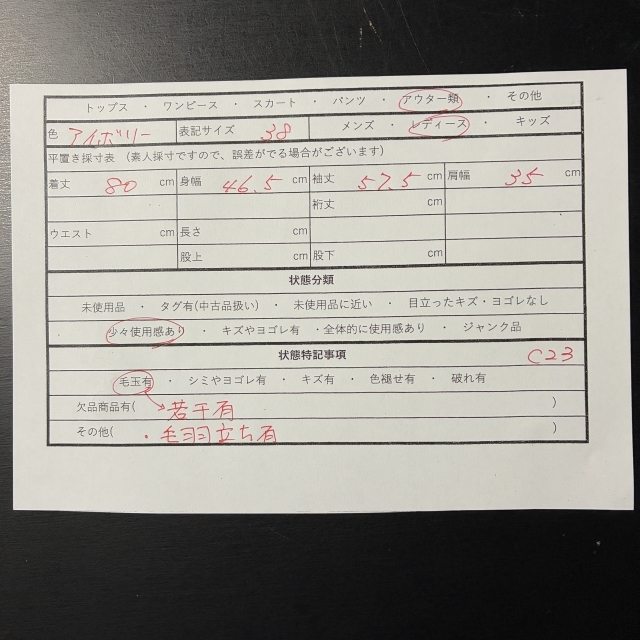 トップス ・ ワンピース ・ スカート ・ パンツ ・ アウター類 ・ その他
色 アイボリー 表記サイズ 38 メンズ ・ レディース ・ キッズ
平置き採寸表 (素人採寸ですので、誤差がでる場合がございます)
着丈 80 cm 身幅 46.5 cm 袖丈 57.5 cm 肩幅 35 cm
裄丈 cm
ウエスト cm 長さ cm
股上 cm 股下 cm
状態分類
未使用品 ・ タグ有(中古品扱い) ・ 未使用品に近い ・ 目立ったキズ・ヨゴレなし
少々使用感あり ・ キズやヨゴレ有 ・全体的に使用感あり ・ ジャンク品
状態特記事項 C23
毛玉有 ・ シミやヨゴレ有 ・ キズ有 ・ 色褪せ有 ・ 破れ有
欠品商品有( 若干有 )
その他( ・毛羽立ち有 )